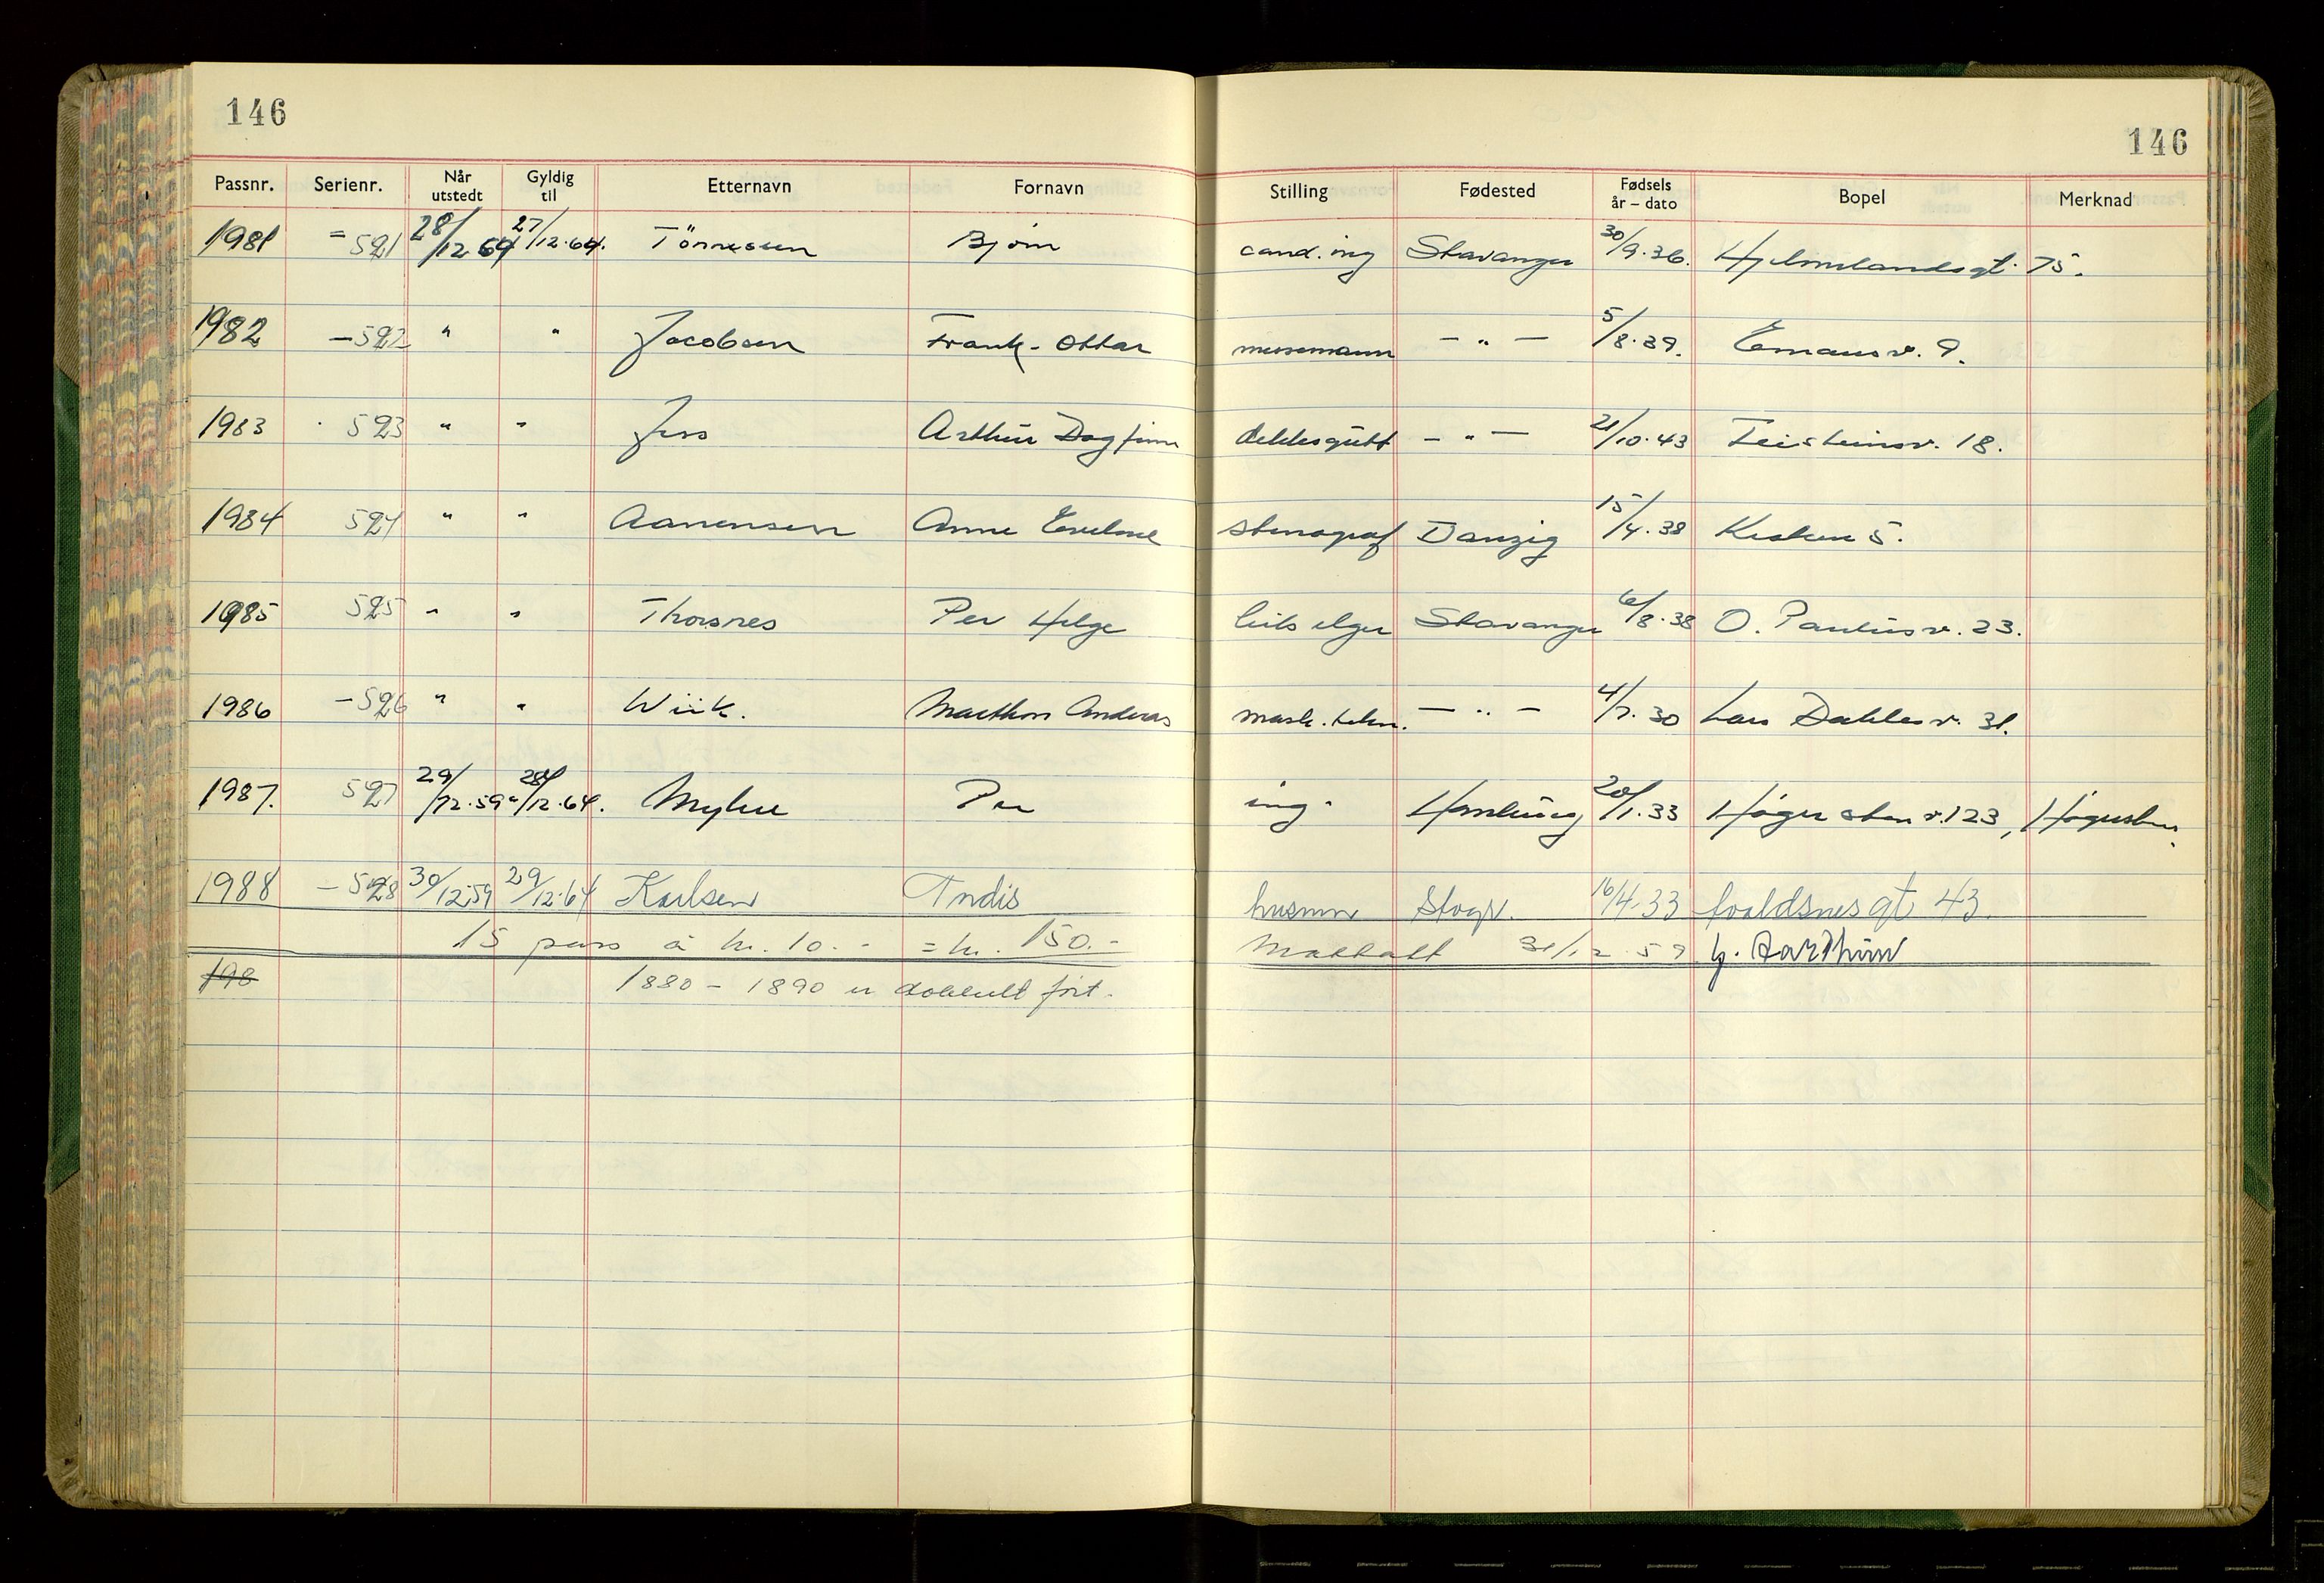 146 146
Passnr. Serienr. Når utstedt Gyldig til Etternavn Fornavn Stilling Fødested Fødsels år – dato Bopel Merknad
1981 = 521 28/12 27/12.64. Tönnesen Bjørn cand. ing Stavanger 30/9.36. Hjelmelandsgt. 75.
1982 – 522 " " Jacobsen Frank - Ottar messemann – " – 5/8.39. Emausv. 9.
1983 523 " " Arthur Dagfinn dekksgutt – " – 21/10.43 Feisteinsv. 18.
1984 524 " " Aanensen Anne stenograf Danzig 15/4.38 5.
1985 525 " " Thorsnes Per Helge Stavanger 6/8.38 O. Paulusv. 23.
1986 – 526 " " Wiik. Andreas mask. tekn. – " – 4/7.30 Lars Dahlesv. 31.
1987. 527 29/12.59 28/12.64. Myhre Per ing. Hamburg 20/1.33 v. 123,
1988 – 528 30/12.59 29/12.64 Karlsen Tndis husmor Stvgr. 16/4.33 gt 43.
15 pass á kr. 10. - = kr. 150. - Mottatt 31/12.59
198 1880 – 1890 er dobbelt ført.